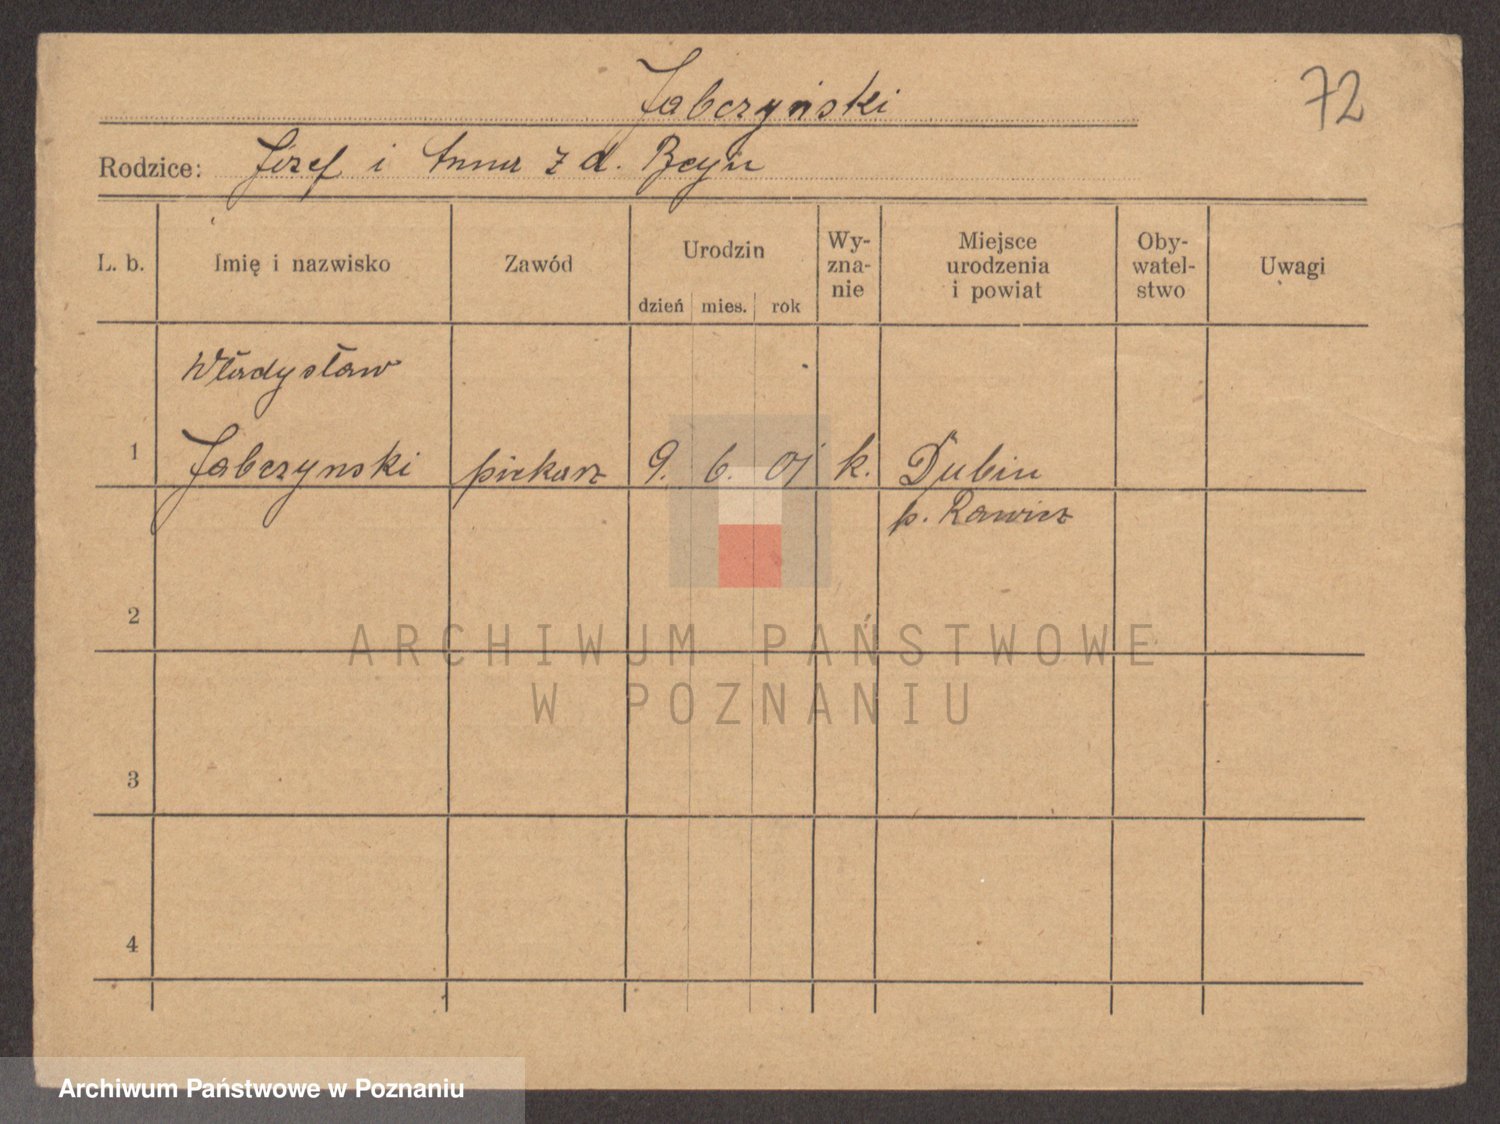 Jabczyński
72
Rodzice: Józef i Anna z d. Bcyn
L. b.
Imię i nazwisko
Zawód
Urodzin
dzień mies. rok
Wy-
zna-
nie
Miejsce
urodzenia
i powiat
Oby-
watel-
stwo
Uwagi
Władysław
1 Jabczynski piekarz 9. 6. 01 k. Dubin
p. Rawicz
2
3
4
ARCHIWUM PAŃSTWOWE
W POZNANIU
Archiwum Państwowe w Poznaniu